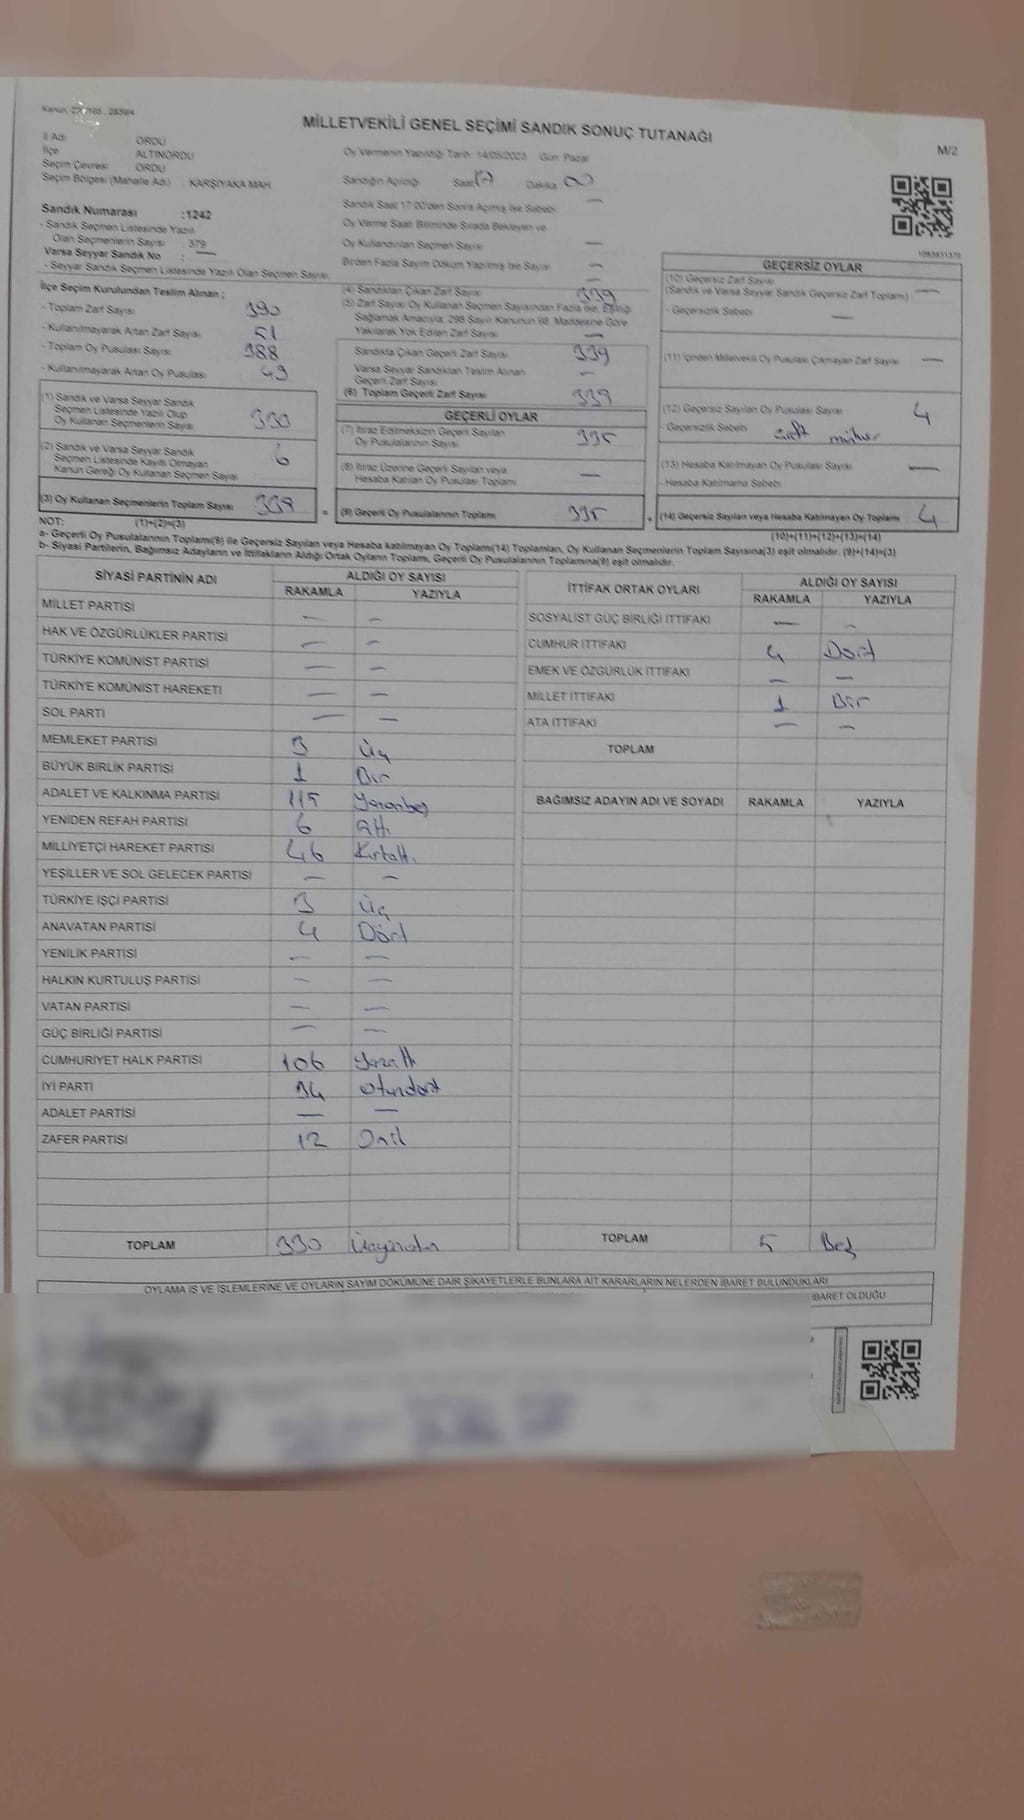 MİLLETVEKİLİ GENEL SEÇİMİ SANDIK SONUÇ TUTANAĞI
M/2
İl Adı ORDU
İlçe ALTINORDU
Seçim Çevresi ORDU
Seçim Bölgesi (Mahalle Adı) KARŞIYAKA MAH.
Sandık Numarası :1242
- Sandık Seçmen Listesinde Yazılı
Olan Seçmenlerin Sayısı 379
Varsa Seyyar Sandık No : —
- Seyyar Sandık Seçmen Listesinde Yazılı Olan Seçmen Sayısı
Oy Vermenin Yapıldığı Tarih 14/05/2023 Gün: Pazar
Sandığın Açıldığı Saat 17 Dakika 00
Sandık Saat 17:00'den Sonra Açılmış İse Sebebi —
Oy Verme Saati Bitiminde Sırada Bekleyen ve
Oy Kullandırılan Seçmen Sayısı —
Birden Fazla Sayım Döküm Yapılmış İse Sayısı —
İlçe Seçim Kurulundan Teslim Alınan ;
- Toplam Zarf Sayısı 390
- Kullanılmayarak Artan Zarf Sayısı 51
- Toplam Oy Pusulası Sayısı 388
- Kullanılmayarak Artan Oy Pusulası 49
(1) Sandık ve Varsa Seyyar Sandık
Seçmen Listesinde Yazılı Olup
Oy Kullanan Seçmenlerin Sayısı
(2) Sandık ve Varsa Seyyar Sandık
Seçmen Listesinde Kayıtlı Olmayan
Kanun Gereği Oy Kullanan Seçmen Sayısı 6
(3) Oy Kullanan Seçmenlerin Toplam Sayısı 339
(1)+(2)=(3)
(4) Sandıktan Çıkan Zarf Sayısı 339
(5) Zarf Sayısı Oy Kullanan Seçmen Sayısından Fazla ise, Eşitliği
Sağlamak Amacıyla, 298 Sayılı Kanunun 98. Maddesine Göre
Yakılarak Yok Edilen Zarf Sayısı —
Sandıkta Çıkan Geçerli Zarf Sayısı 339
Varsa Seyyar Sandıktan Teslim Alınan
Geçerli Zarf Sayısı —
(6) Toplam Geçerli Zarf Sayısı 339
GEÇERLİ OYLAR
(7) İtiraz Edilmeksizin Geçerli Sayılan
Oy Pusulalarının Sayısı 335
(8) İtiraz Üzerine Geçerli Sayılan veya
Hesaba Katılan Oy Pusulası Toplamı —
(9) Geçerli Oy Pusulalarının Toplamı 335
GEÇERSİZ OYLAR
(10) Geçersiz Zarf Sayısı
(Sandık ve Varsa Seyyar Sandık Geçersiz Zarf Toplamı) —
- Geçersizlik Sebebi —
(11) İçinden Milletvekili Oy Pusulası Çıkmayan Zarf Sayısı —
(12) Geçersiz Sayılan Oy Pusulası Sayısı 4
- Geçersizlik Sebebi çift mühür
(13) Hesaba Katılmayan Oy Pusulası Sayısı —
- Hesaba Katılmama Sebebi
(14) Geçersiz Sayılan veya Hesaba Katılmayan Oy Toplamı 4
(10)+(11)+(12)+(13)=(14)
NOT:
a- Geçerli Oy Pusulalarının Toplamı(9) ile Geçersiz Sayılan veya Hesaba katılmayan Oy Toplamı(14) Toplamları, Oy Kullanan Seçmenlerin Toplam Sayısına(3) eşit olmalıdır. (9)+(14)=(3)
b- Siyasi Partilerin, Bağımsız Adayların ve İttifakların Aldığı Ortak Oyların Toplamı, Geçerli Oy Pusulalarının Toplamına(9) eşit olmalıdır.
SİYASİ PARTİNİN ADI ALDIĞI OY SAYISI
RAKAMLA YAZIYLA
MİLLET PARTİSİ — —
HAK VE ÖZGÜRLÜKLER PARTİSİ — —
TÜRKİYE KOMÜNİST PARTİSİ — —
TÜRKİYE KOMÜNİST HAREKETİ — —
SOL PARTİ — —
MEMLEKET PARTİSİ 3 Üç
BÜYÜK BİRLİK PARTİSİ 1 Bir
ADALET VE KALKINMA PARTİSİ 115 Yüzonbeş
YENİDEN REFAH PARTİSİ 6 Altı
MİLLİYETÇİ HAREKET PARTİSİ 46 Kırkaltı
YEŞİLLER VE SOL GELECEK PARTİSİ — —
TÜRKİYE İŞÇİ PARTİSİ 3 Üç
ANAVATAN PARTİSİ 4 Dört
YENİLİK PARTİSİ — —
HALKIN KURTULUŞ PARTİSİ — —
VATAN PARTİSİ — —
GÜÇ BİRLİĞİ PARTİSİ — —
CUMHURİYET HALK PARTİSİ 106 Yüzaltı
İYİ PARTİ 34 Otuzdört
ADALET PARTİSİ — —
ZAFER PARTİSİ 12 Oniki
TOPLAM 330 Üçyüzotuz
İTTİFAK ORTAK OYLARI ALDIĞI OY SAYISI
RAKAMLA YAZIYLA
SOSYALİST GÜÇ BİRLİĞİ İTTİFAKI — —
CUMHUR İTTİFAKI 4 Dört
EMEK VE ÖZGÜRLÜK İTTİFAKI — —
MİLLET İTTİFAKI 1 Bir
ATA İTTİFAKI — —
TOPLAM
BAĞIMSIZ ADAYIN ADI VE SOYADI RAKAMLA YAZIYLA
TOPLAM 5 Beş
OYLAMA İŞ VE İŞLEMLERİNE VE OYLARIN SAYIM DÖKÜMÜNE DAİR ŞİKAYETLERLE BUNLARA AİT KARARLARIN NELERDEN İBARET BULUNDUKLARI
İBARET OLDUĞU